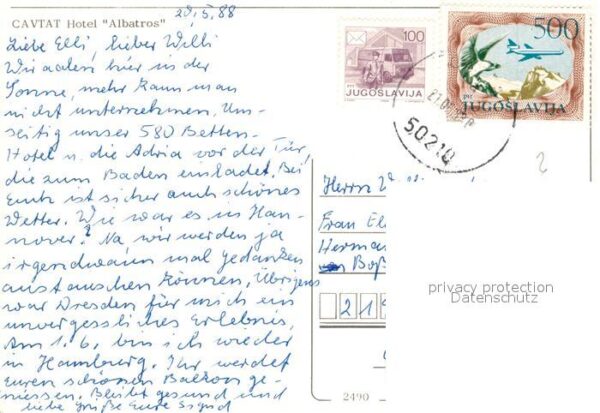 CAVTAT Hotel "Albatros"
20.5.88
Liebe Elli, lieber Willi
Wir aalen hier in der
Sonne, mehr kann man
nicht unternehmen. Um-
seitig unser 580 Betten-
Hotel u. die Adria vor der Tür,
die zum Baden einladet. Bei
Euch ist sicher auch schönes
Wetter. Wie war es in Han-
nover? Na wir werden ja
irgendwann mal Gedanken
austauschen können. Übrigens
war Dresden für mich ein
unvergessliches Erlebnis.
Am 1.6. bin ich wieder
in Hamburg. Ihr werdet
Euren schönen Balkon ge-
niessen. Bleibt gesund und
liebe Grüße Eure Sigrid
100
JUGOSLAVIJA
500
JUGOSLAVIJA
50210
2
Herrn
Frau El
Herman
Boß
219
privacy protection
Datenschutz
2490